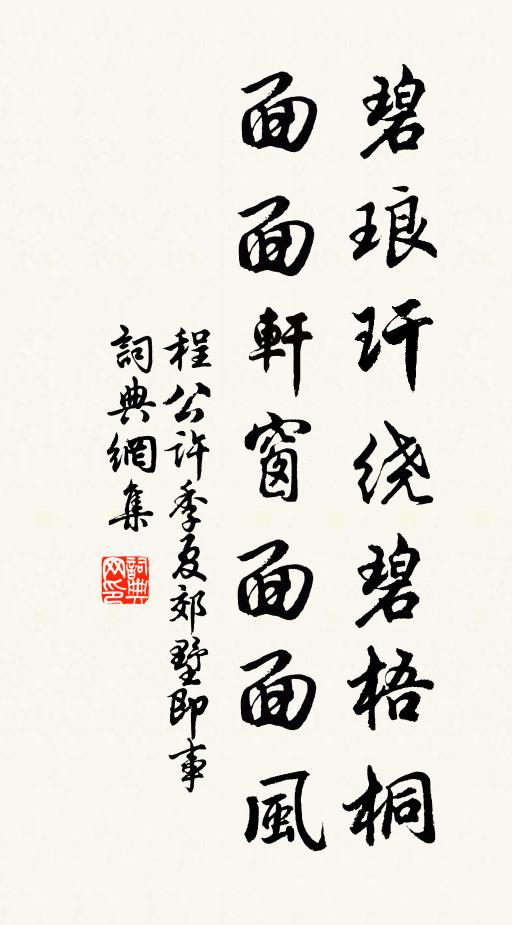 碧琅玕绕碧梧桐
面面軒窗面面風
程公許季夏郊墅即事
詞典網集
詞典
网印